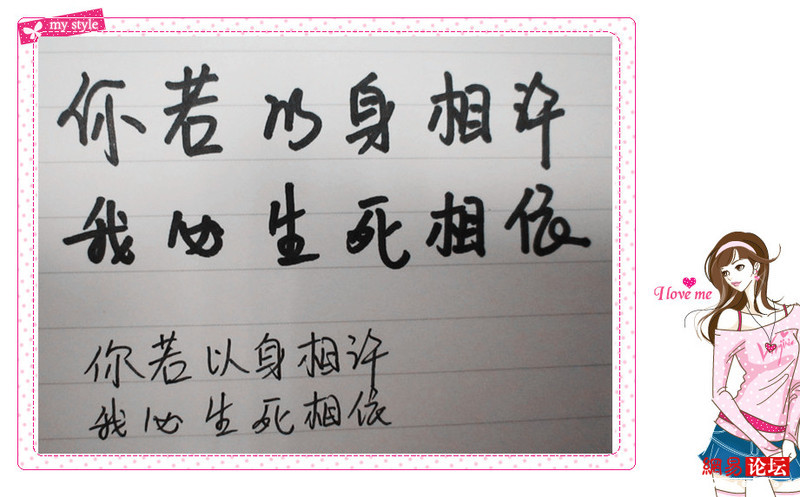 my style
你若以身相许
我必生死相依
你若以身相许
我必生死相依
I love me
網易论坛